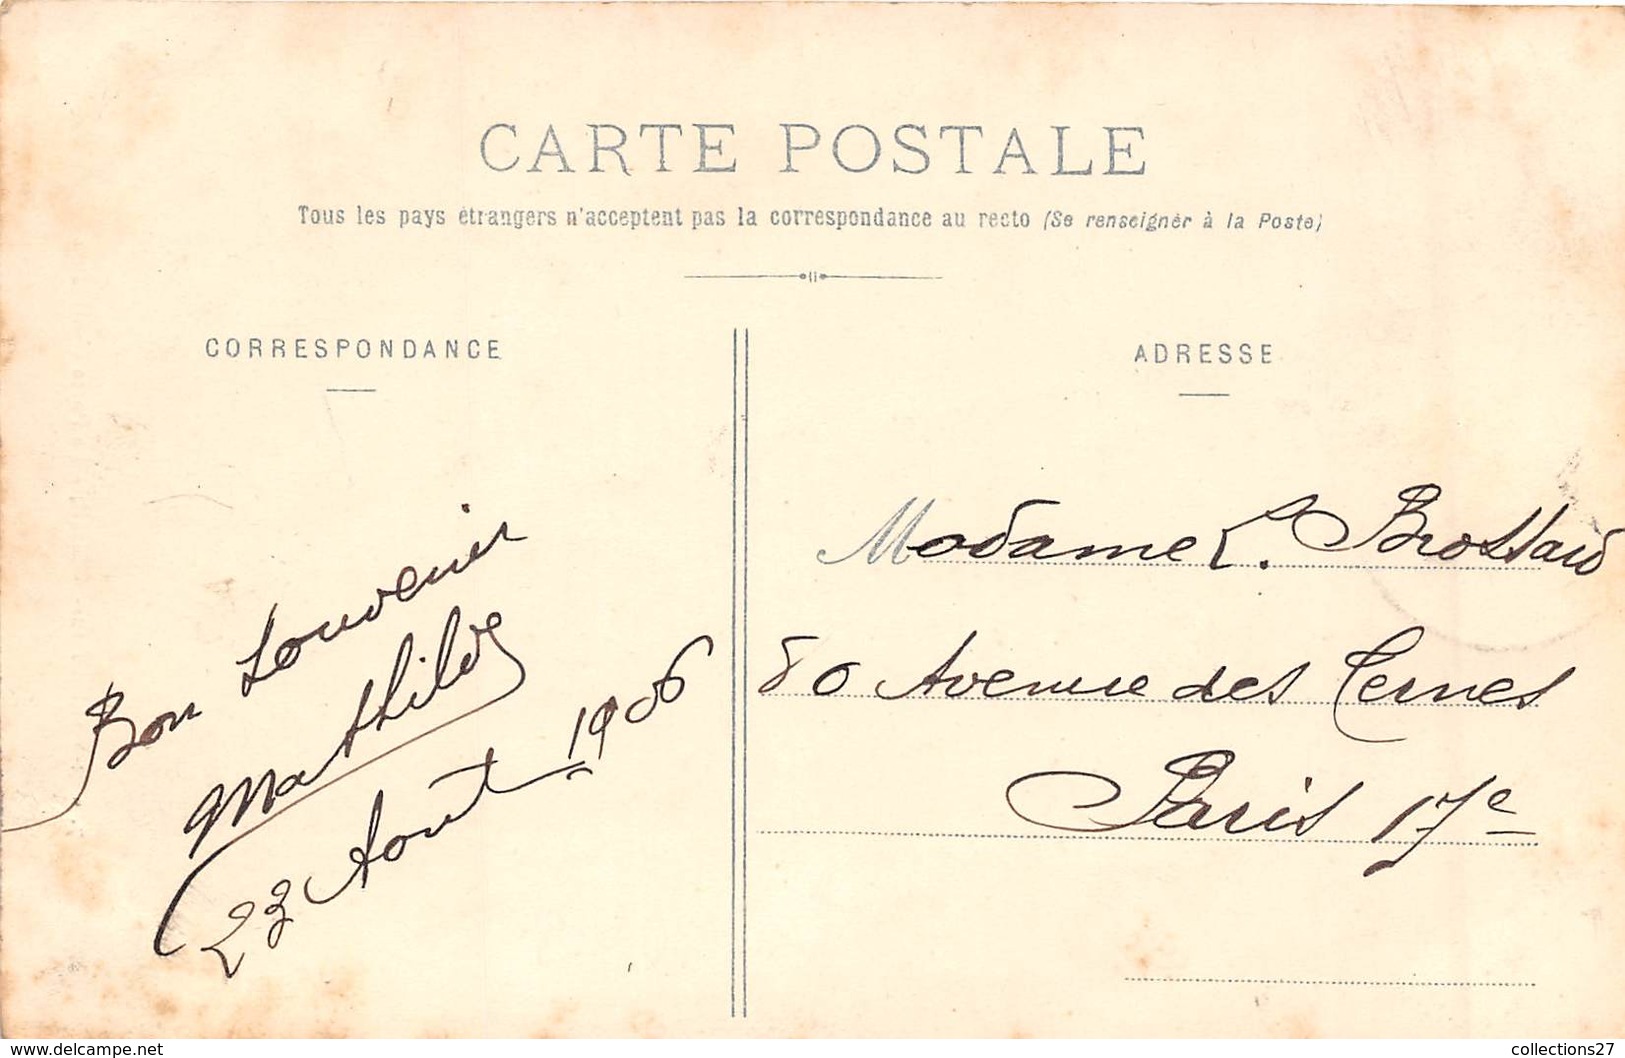 CARTE POSTALE
Tous les pays étrangers n'acceptent pas la correspondance au recto (Se renseigner à la Poste)
CORRESPONDANCE
Bon Souvenir
Mathilde
23 Août 1906
ADRESSE
Madame L. Brossard
80 Avenue des Ternes
Paris 17e
www.delcampe.net
collections27